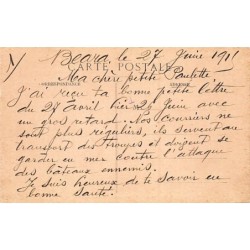 Bcara le 27 Juin 191
CARTE POSTALE
Ma chère petite Paulette
CORRESPONDANCE
J'ai reçu ta bonne petite lettre
du 27 avril hier 26 Juin avec
un gros retard. Nos courriers ne
sont plus réguliers, ils servent au
transport des troupes et doivent se
garder en mer contre l'attaque
des bateaux ennemis.
Je suis heureux de te savoir en
bonne santé.